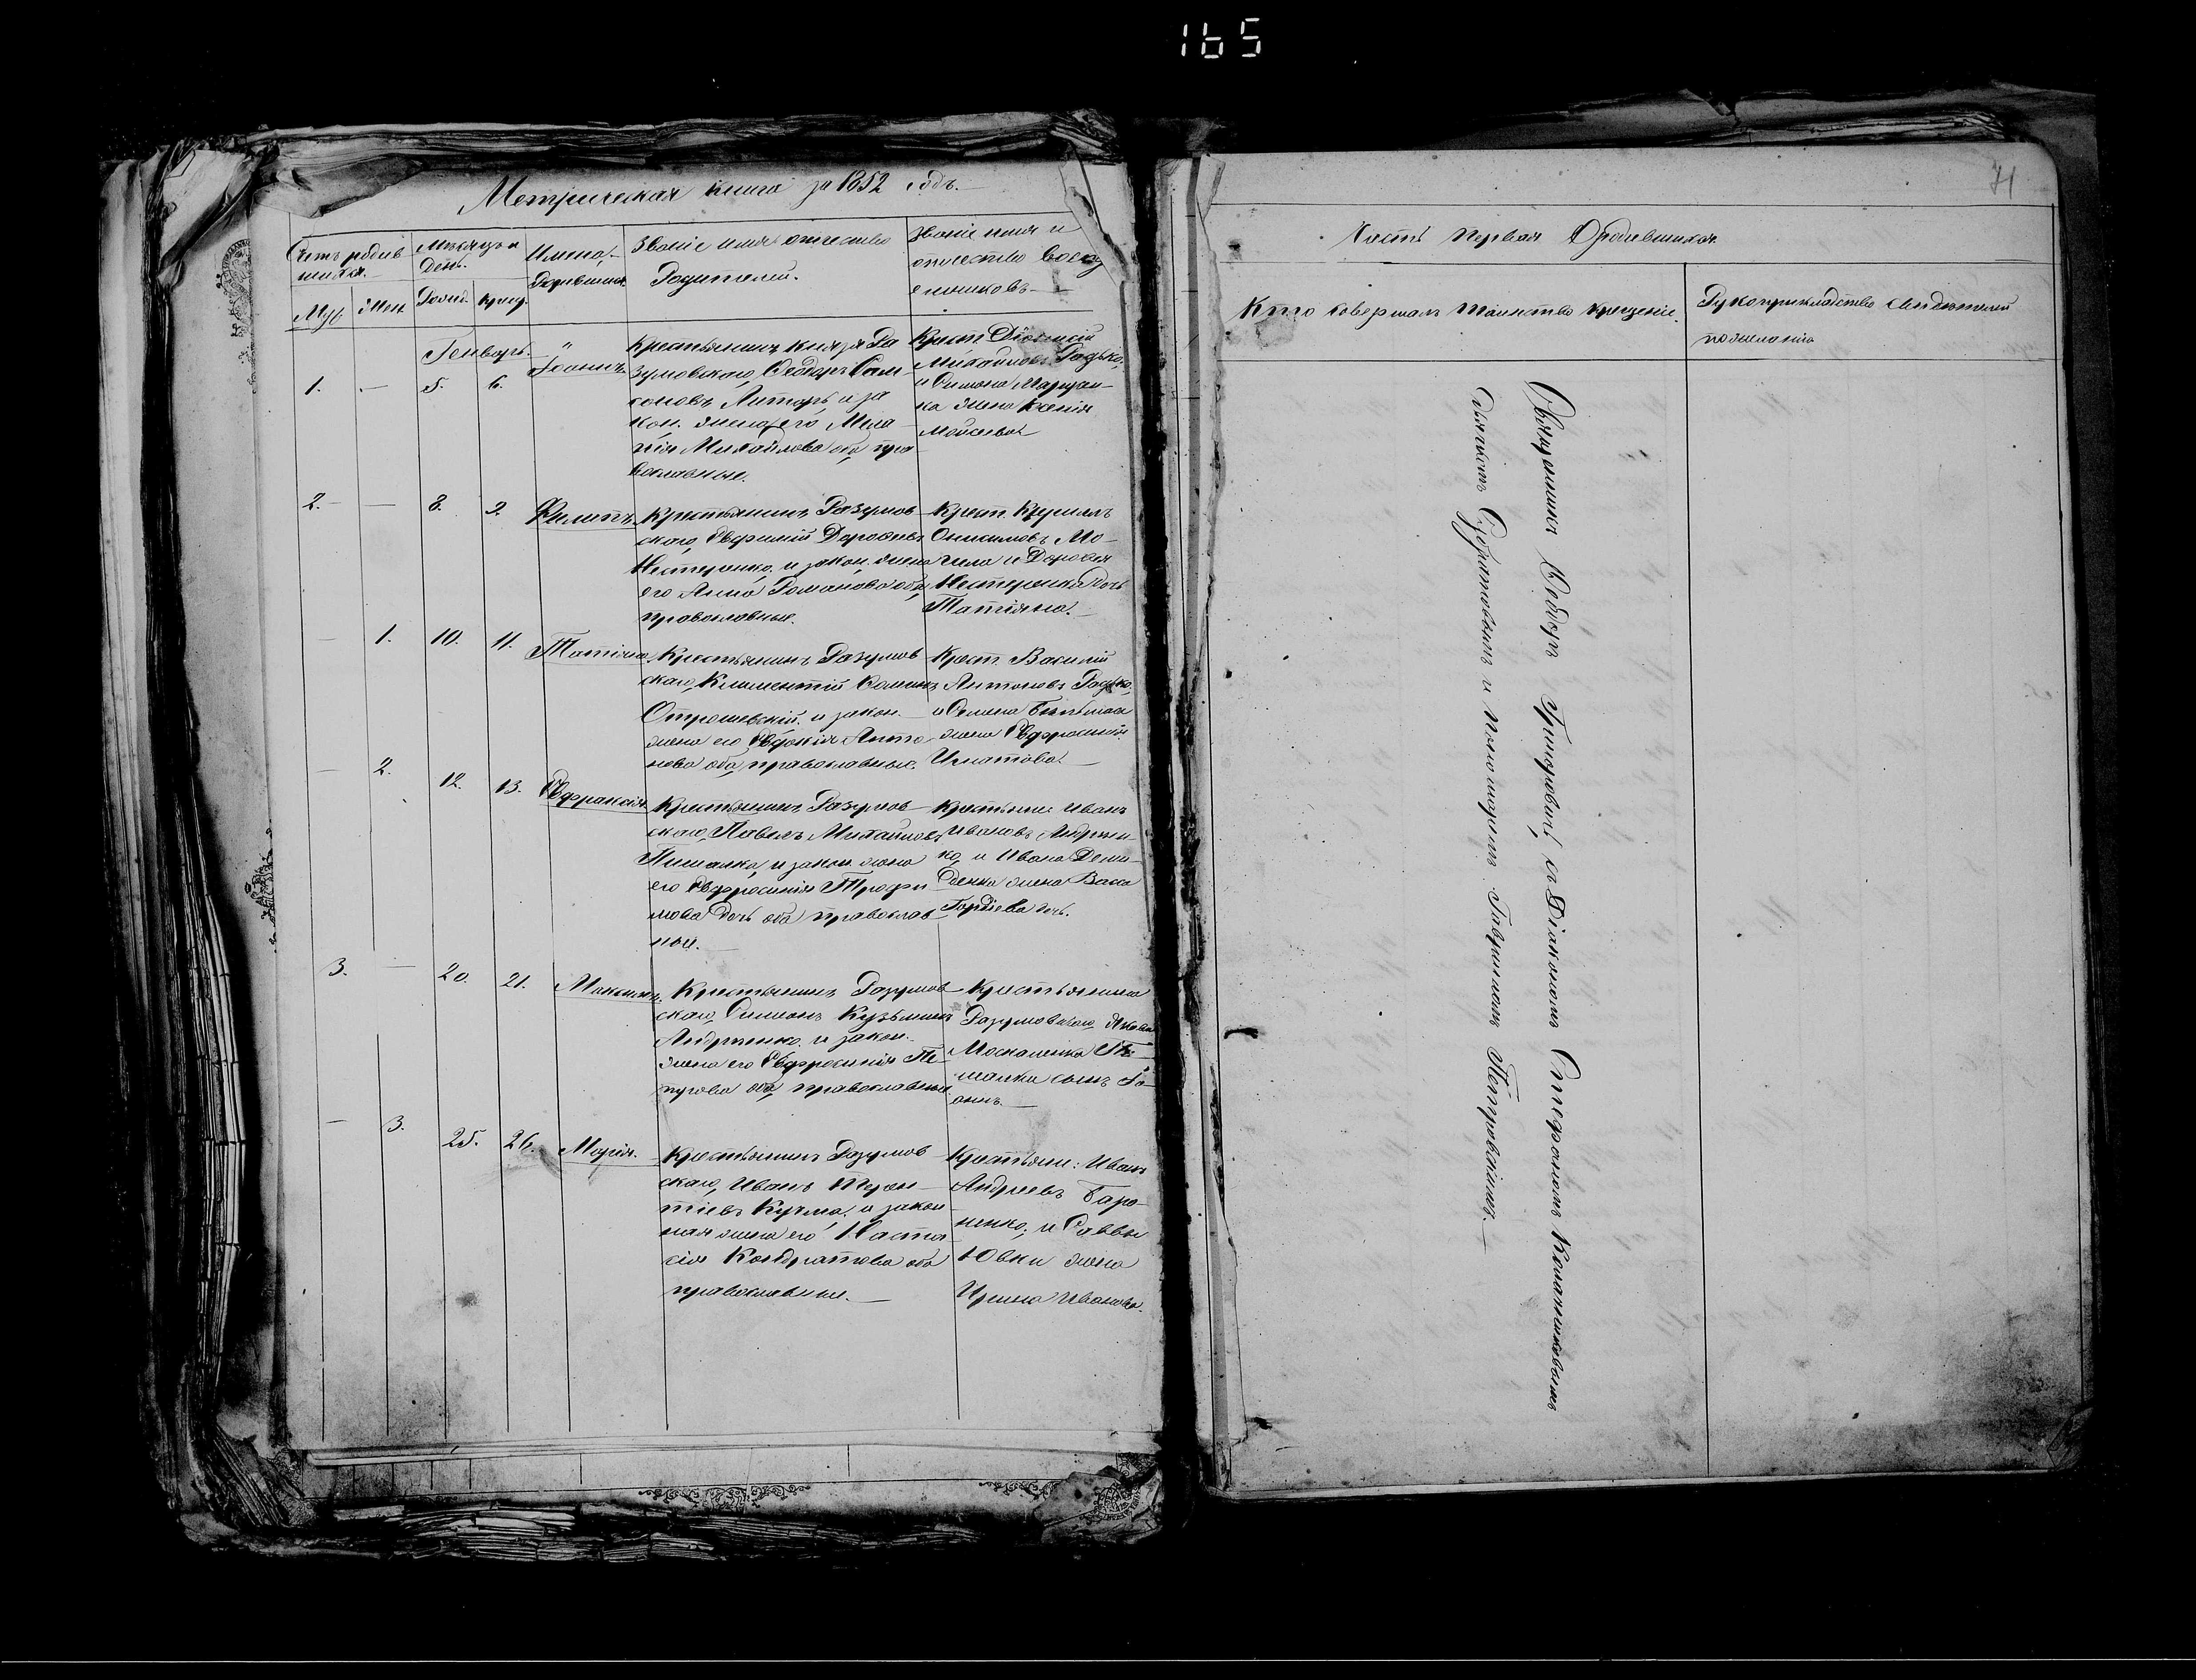 165
Метрическая книга за 1852 годъ.
Счетъ родив
шихся.
Мѣсяцъ и
День.
Имена
Родившихся
Званіе имя и отчество
Родителей.
Званіе имя и
отчество воспр
емниковъ
Муж
Жен
Рожд.
Крещ.
Генварь.
1. — 5. 6.
Іоаннъ
Крестьянинъ Князя Ра
зумовскаго, Ѳеодоръ Сам
соновъ и за
кон. жена его Мела
нія Михайлова оба пра
вославные.
Крест. Діонисій
Михайловъ Радько,
и Симона
ка жена Ксенія
Мойсеева
2. — 8. 9. Филипъ
Крестьянинъ Разумов
скаго, Евфимій Дорофеевъ
Нестеренко, и закон. жена
его Анна Романова оба
православные.
Крест. Кириллъ
Онисимовъ Мо
гила и Дорофея
Нестеренка дочь
Татіяна.
— 1. 10. 11. Татіяна
Крестьянинъ Разумов
скаго, Климентій
Отрошевскій и закон.
жена его Евдокія Анто
нова оба православные.
Крест. Василій
Антоновъ Радько,
и Семена
жена Евфросинія
Игнатова
— 2. 12. 13. Евфраксія
Крестьянинъ Разумов
скаго, Павелъ Михайловъ
и закон. жена
его Евфросинія Трофи
мова дочь оба православ
ные.
Крестьяне: Иванъ
Ивановъ Андріен
ко, и Ивана Деми
денка жена Васса
Гордіева дочь.
3. — 20. 21. Максимъ
Крестьянинъ Разумов
скаго, Симеонъ Кузьминъ
Андріенко и закон.
жена его Евфросинія Пе
трова оба православные
Крестьянина
Разумовскаго Якова
Москаленка
сынъ Іо
аннъ.
— 3. 25. 26. Марія.
Крестьянинъ Разумов
скаго, Иванъ Терен
тіевъ Кучма, и закон
ная жена его Наста
сія Кондратова оба
православные.
Крестьяне: Иванъ
Андреевъ
ненко, и Саввы
Ювки жена
Ирина Иванова.
71
Часть Первая О родившихся
Кто совершалъ таинство крещенія.
Рукоприкладство свидѣтелей
по желанію
Священникъ Ѳеодоръ Григоровичъ, съ Діакономъ Стефаномъ
дьячкомъ и пономаремъ Гаврииломъ Петровскимъ.